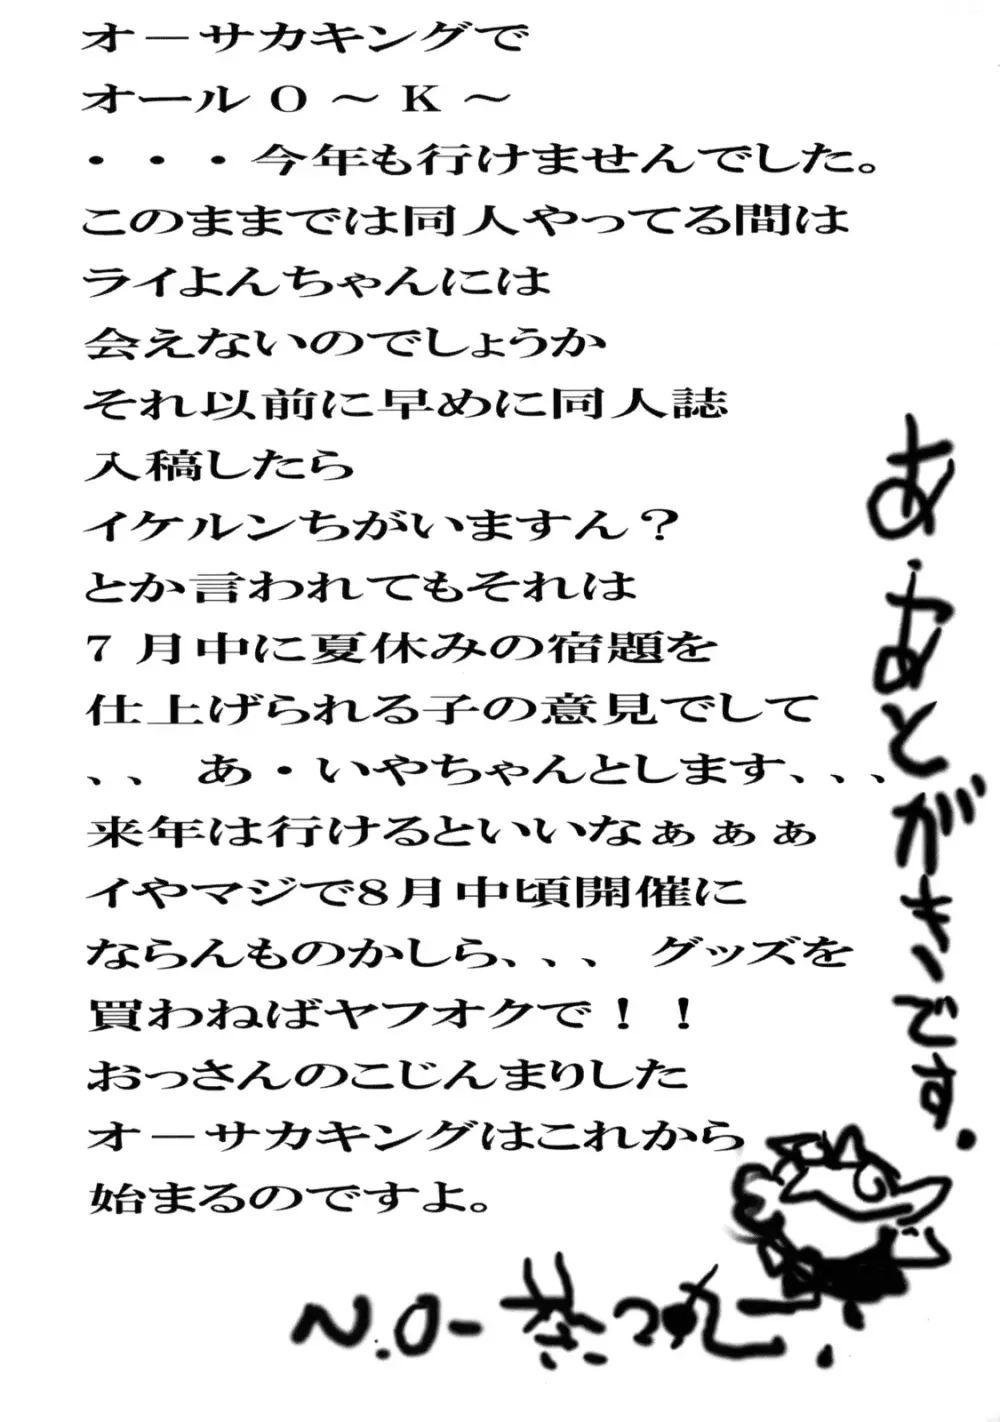 オーサカキングで
オールO～K～
・・・今年も行けませんでした。
このままでは同人やってる間は
ライよんちゃんには
会えないのでしょうか
それ以前に早めに同人誌
入稿したら
イケルンちがいますん？
とか言われてもそれは
7月中に夏休みの宿題を
仕上げられる子の意見でして
、、あ・いやちゃんとします、、、
来年は行けるといいなぁぁぁ
イやマジで8月中頃開催に
ならんものかしら、、、グッズを
買わねばヤフオクで！！
おっさんのこじんまりした
オーサカキングはこれから
始まるのですよ。
あ・あとがきです.
N.O-